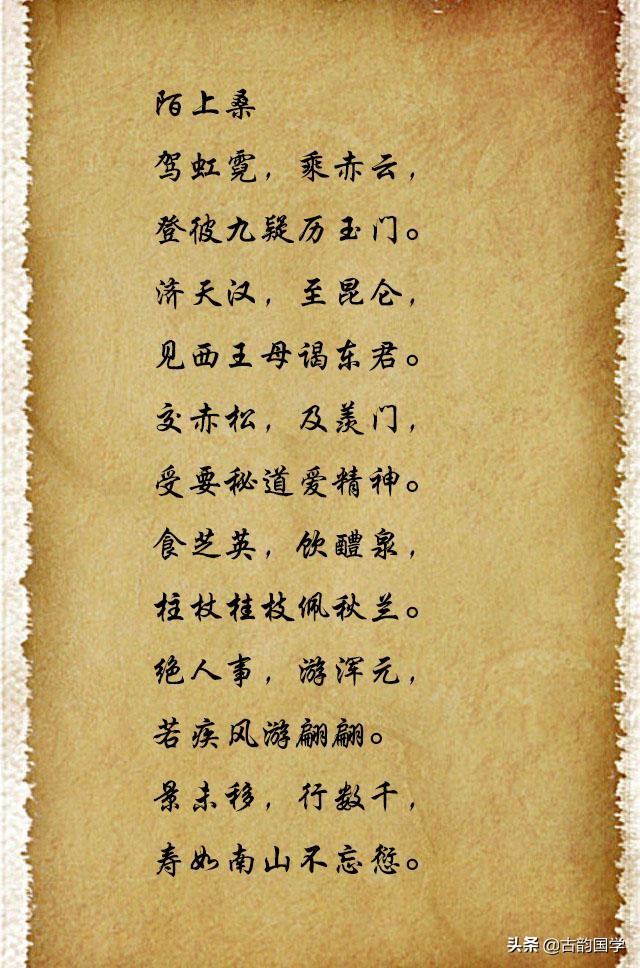 陌上桑
驾虹霓，乘赤云，
登彼九疑历玉门。
济天汉，至昆仑，
见西王母谒东君。
交赤松，及羡门，
受要秘道爱精神。
食芝英，饮醴泉，
柱杖桂枝佩秋兰。
绝人事，游浑元，
若疾风游翩翩。
景未移，行数千，
寿如南山不忘愆。
头条 @古韵国学